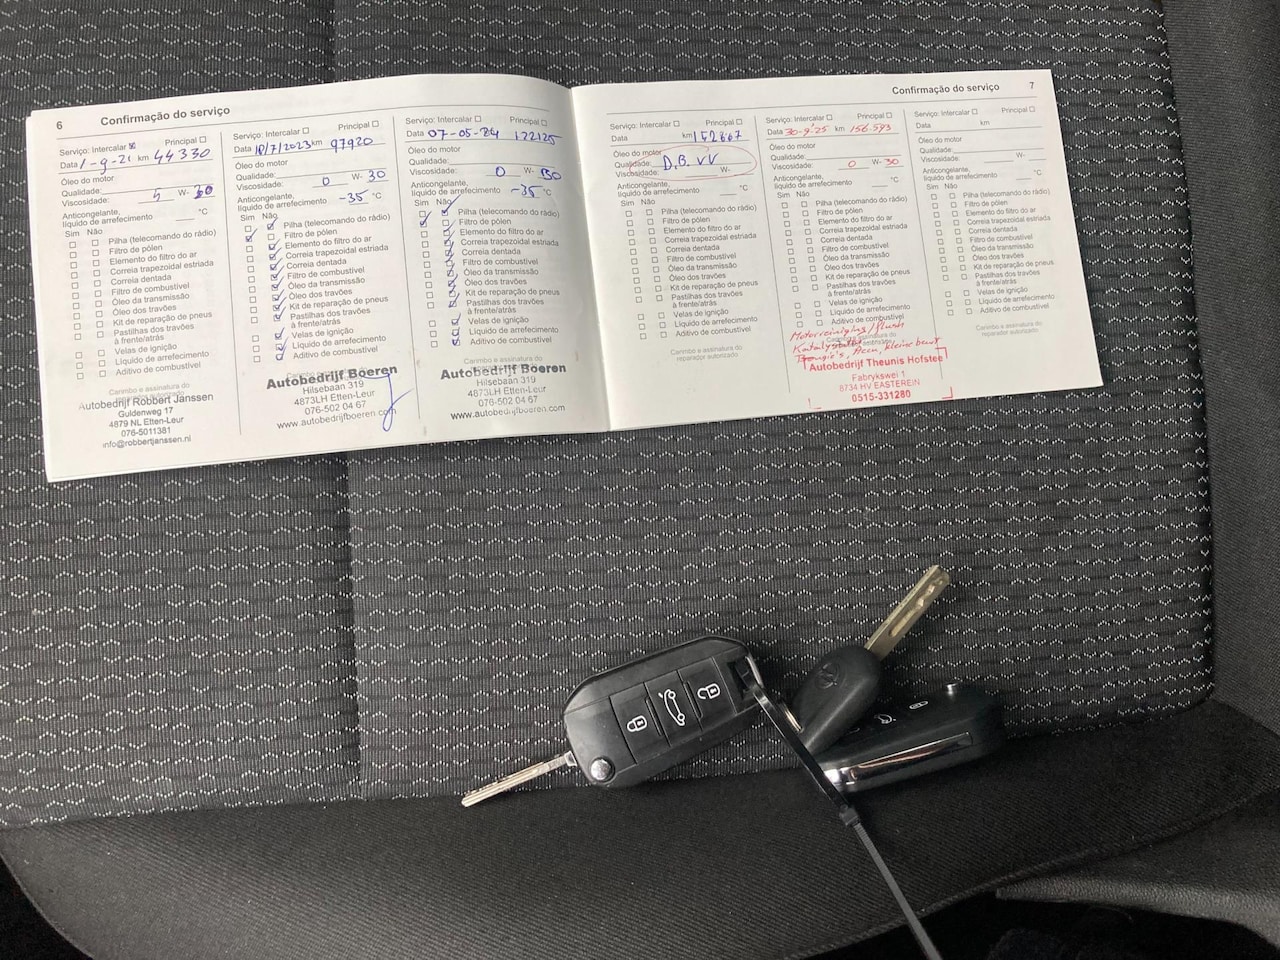 6 Confirmação do serviço
Serviço: Intercalar ☒ Principal ☐
Data 1-9-21 km 44330
Óleo do motor
Qualidade:
Viscosidade: 5 W- 30
Anticongelante,
líquido de arrefecimento °C
Sim Não
Pilha (telecomando do rádio)
Filtro de pólen
Elemento do filtro do ar
Correia trapezoidal estriada
Correia dentada
Filtro de combustível
Óleo da transmissão
Óleo dos travões
Kit de reparação de pneus
Pastilhas dos travões
à frente/atrás
Velas de ignição
Líquido de arrefecimento
Aditivo de combustível
Carimbo e assinatura do
Autobedrijf Robbert Janssen
Guldenweg 17
4879 NL Etten-Leur
076-5011381
info@robbertjanssen.nl
Serviço: Intercalar ☐ Principal ☐
Data 18/7/2023 km 97920
Óleo do motor
Qualidade:
Viscosidade: 0 W- 30
Anticongelante,
líquido de arrefecimento -35 °C
Sim Não
Pilha (telecomando do rádio)
Filtro de pólen
Elemento do filtro do ar
Correia trapezoidal estriada
Correia dentada
Filtro de combustível
Óleo da transmissão
Óleo dos travões
Kit de reparação de pneus
Pastilhas dos travões
à frente/atrás
Velas de ignição
Líquido de arrefecimento
Aditivo de combustível
Autobedrijf Boeren
Hilsebaan 319
4873LH Etten-Leur
076-502 04 67
www.autobedrijfboeren.com
Serviço: Intercalar ☐ Principal ☐
Data 07-05-24 122125
Óleo do motor
Qualidade:
Viscosidade: 0 W- 30
Anticongelante,
líquido de arrefecimento -35 °C
Sim Não
Pilha (telecomando do rádio)
Filtro de pólen
Elemento do filtro do ar
Correia trapezoidal estriada
Correia dentada
Filtro de combustível
Óleo da transmissão
Óleo dos travões
Kit de reparação de pneus
Pastilhas dos travões
à frente/atrás
Velas de ignição
Líquido de arrefecimento
Aditivo de combustível
Carimbo e assinatura do
Autobedrijf Boeren
Hilsebaan 319
4873LH Etten-Leur
076-502 04 67
www.autobedrijfboeren.com
Confirmação do serviço 7
Serviço: Intercalar ☐ Principal ☐
Data km 152667
Óleo do motor
Qualidade: D.B. VV
Viscosidade: W-
Anticongelante,
líquido de arrefecimento °C
Sim Não
Pilha (telecomando do rádio)
Filtro de pólen
Elemento do filtro do ar
Correia trapezoidal estriada
Correia dentada
Filtro de combustível
Óleo da transmissão
Óleo dos travões
Kit de reparação de pneus
Pastilhas dos travões
à frente/atrás
Velas de ignição
Líquido de arrefecimento
Aditivo de combustível
Carimbo e assinatura do
reparador autorizado
Serviço: Intercalar ☐ Principal ☐
Data 30-9-25 km 156.593
Óleo do motor
Qualidade:
Viscosidade: 0 W- 30
Anticongelante,
líquido de arrefecimento °C
Sim Não
Pilha (telecomando do rádio)
Filtro de pólen
Elemento do filtro do ar
Correia trapezoidal estriada
Correia dentada
Filtro de combustível
Óleo da transmissão
Óleo dos travões
Kit de reparação de pneus
Pastilhas dos travões
à frente/atrás
Velas de ignição
Líquido de arrefecimento
Aditivo de combustível
Motorreiniging/flush
kleine beurt
Autobedrijf Theunis Hofstee
Fabrykswei 1
8734 HV EASTEREIN
0515-331280
Serviço: Intercalar ☐ Principal ☐
Data km
Óleo do motor
Qualidade:
Viscosidade: W-
Anticongelante,
líquido de arrefecimento °C
Sim Não
Pilha (telecomando do rádio)
Filtro de pólen
Elemento do filtro do ar
Correia trapezoidal estriada
Correia dentada
Filtro de combustível
Óleo da transmissão
Óleo dos travões
Kit de reparação de pneus
Pastilhas dos travões
à frente/atrás
Velas de ignição
Líquido de arrefecimento
Aditivo de combustível
Carimbo e assinatura do
reparador autorizado